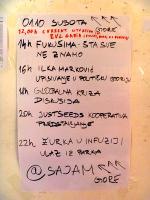 01.10 SUBOTA
GORE
14h FUKUŠIMA - ŠTA SVE
NE ZNAMO
16h ILKA MARKOVIĆ
UPISIVANJE U POLITIČKI
18h GLOBALNA KRIZA
DISKUSIJA
20h JUSTSEEDS KOOPERATIVA
PREDSTAVLJANJE
22h ŽURKA U INFUZIJI/
ULAZ IZ PARKA
@ SAJAM
GORE